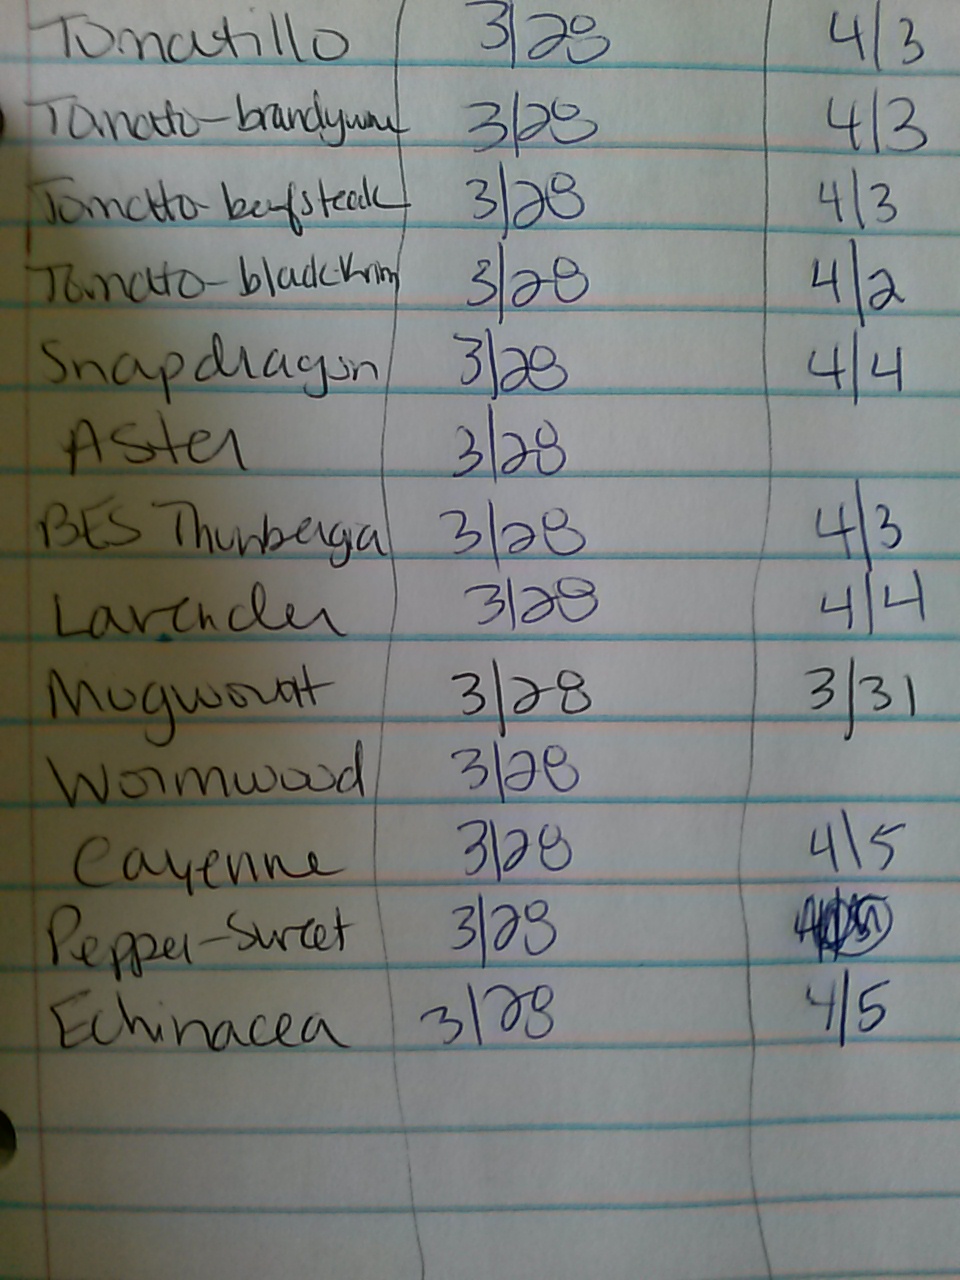 Tomatillo 3/28 4/3
Tomato-brandywine 3/28 4/3
Tomatto-beefsteak 3/28 4/3
Tomato-black krim 3/28 4/2
Snapdragon 3/28 4/4
Aster 3/28
BES Thunbergia 3/28 4/3
Lavender 3/28 4/4
Mugwort 3/28 3/31
Wormwood 3/28
Cayenne 3/28 4\5
Pepper-Sweet 3/28
Echinacea 3/28 4/5